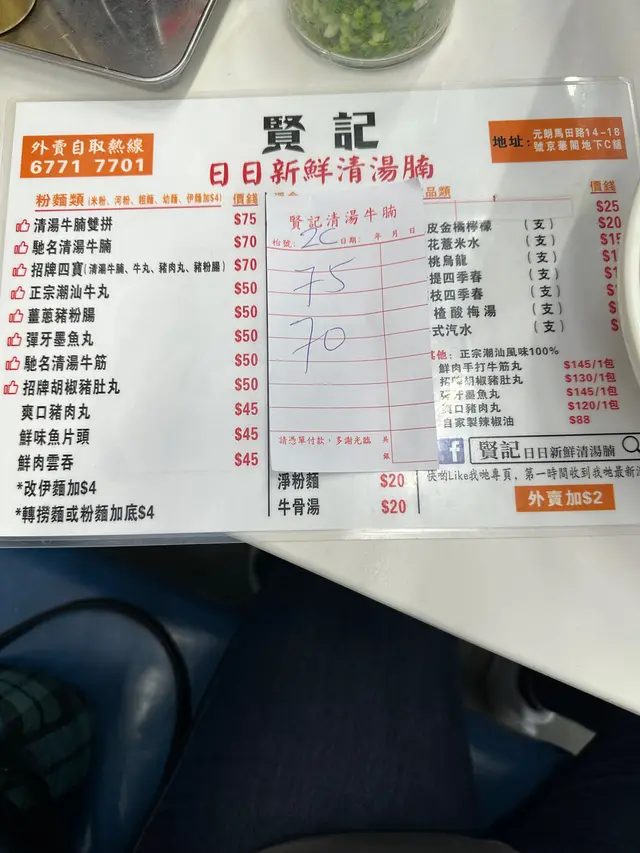 賢記
日日新鮮清湯腩
外賣自取熱線
6771 7701
地址:
元朗馬田路14-18
號京華閣地下C舖
粉麵類 (米粉、河粉、粗麵、幼麵、伊麵加$4) 價錢
清湯牛腩雙拼 $75
馳名清湯牛腩 $70
招牌四寶(清湯牛腩、牛丸、豬肉丸、豬粉腸) $70
正宗潮汕牛丸 $50
薑蔥豬粉腸 $50
彈牙墨魚丸 $50
馳名清湯牛筋 $50
招牌胡椒豬肚丸 $50
爽口豬肉丸 $45
鮮味魚片頭 $45
鮮肉雲吞 $45
*改伊麵加$4
*轉撈麵或粉麵加底$4
賢記清湯牛腩
枱號: 2C 日期: 年 月 日
75
70
請憑單付款,多謝光臨
淨粉麵 $20
牛骨湯 $20
品類 價錢
$25
皮金橘檸檬 (支) $20
花薏米水 (支)
桃烏龍 (支)
提四季春 (支)
枝四季春 (支)
楂酸梅湯 (支)
式汽水 (支)
其他: 正宗潮汕風味100%
鮮肉手打牛筋丸 $145/1包
招牌胡椒豬肚丸 $130/1包
彈牙墨魚丸 $145/1包
爽口豬肉丸 $120/1包
自家製辣椒油 $88
f 賢記日日新鮮清湯腩
快啲Like我哋專頁,第一時間收到我哋最新
外賣加$2